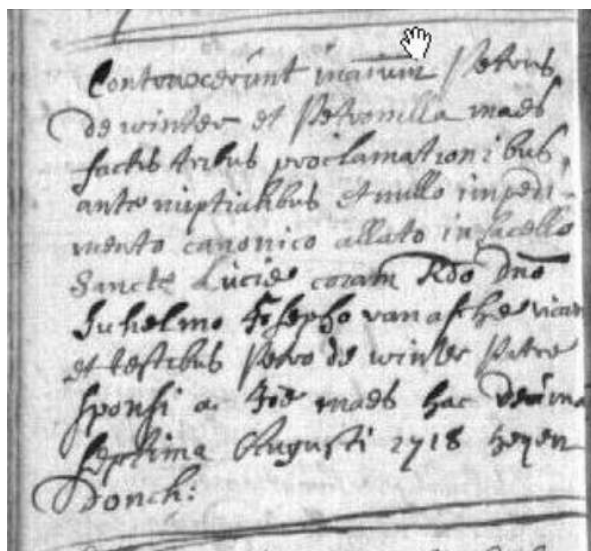 Contraxerunt matrim Petrus
de winter et Petronilla maes
factis tribus proclamationibus,
ante nuptialibus et nullo impedi-
mento canonico allato in sacello
Sancte Lucie coram Rdo dno
Guhelmo Josepho van assche vicar
et testibus Petro de winter Patre
sponsi a. Joe maes hac decima
septima Augusti 1718 heyen
donch: